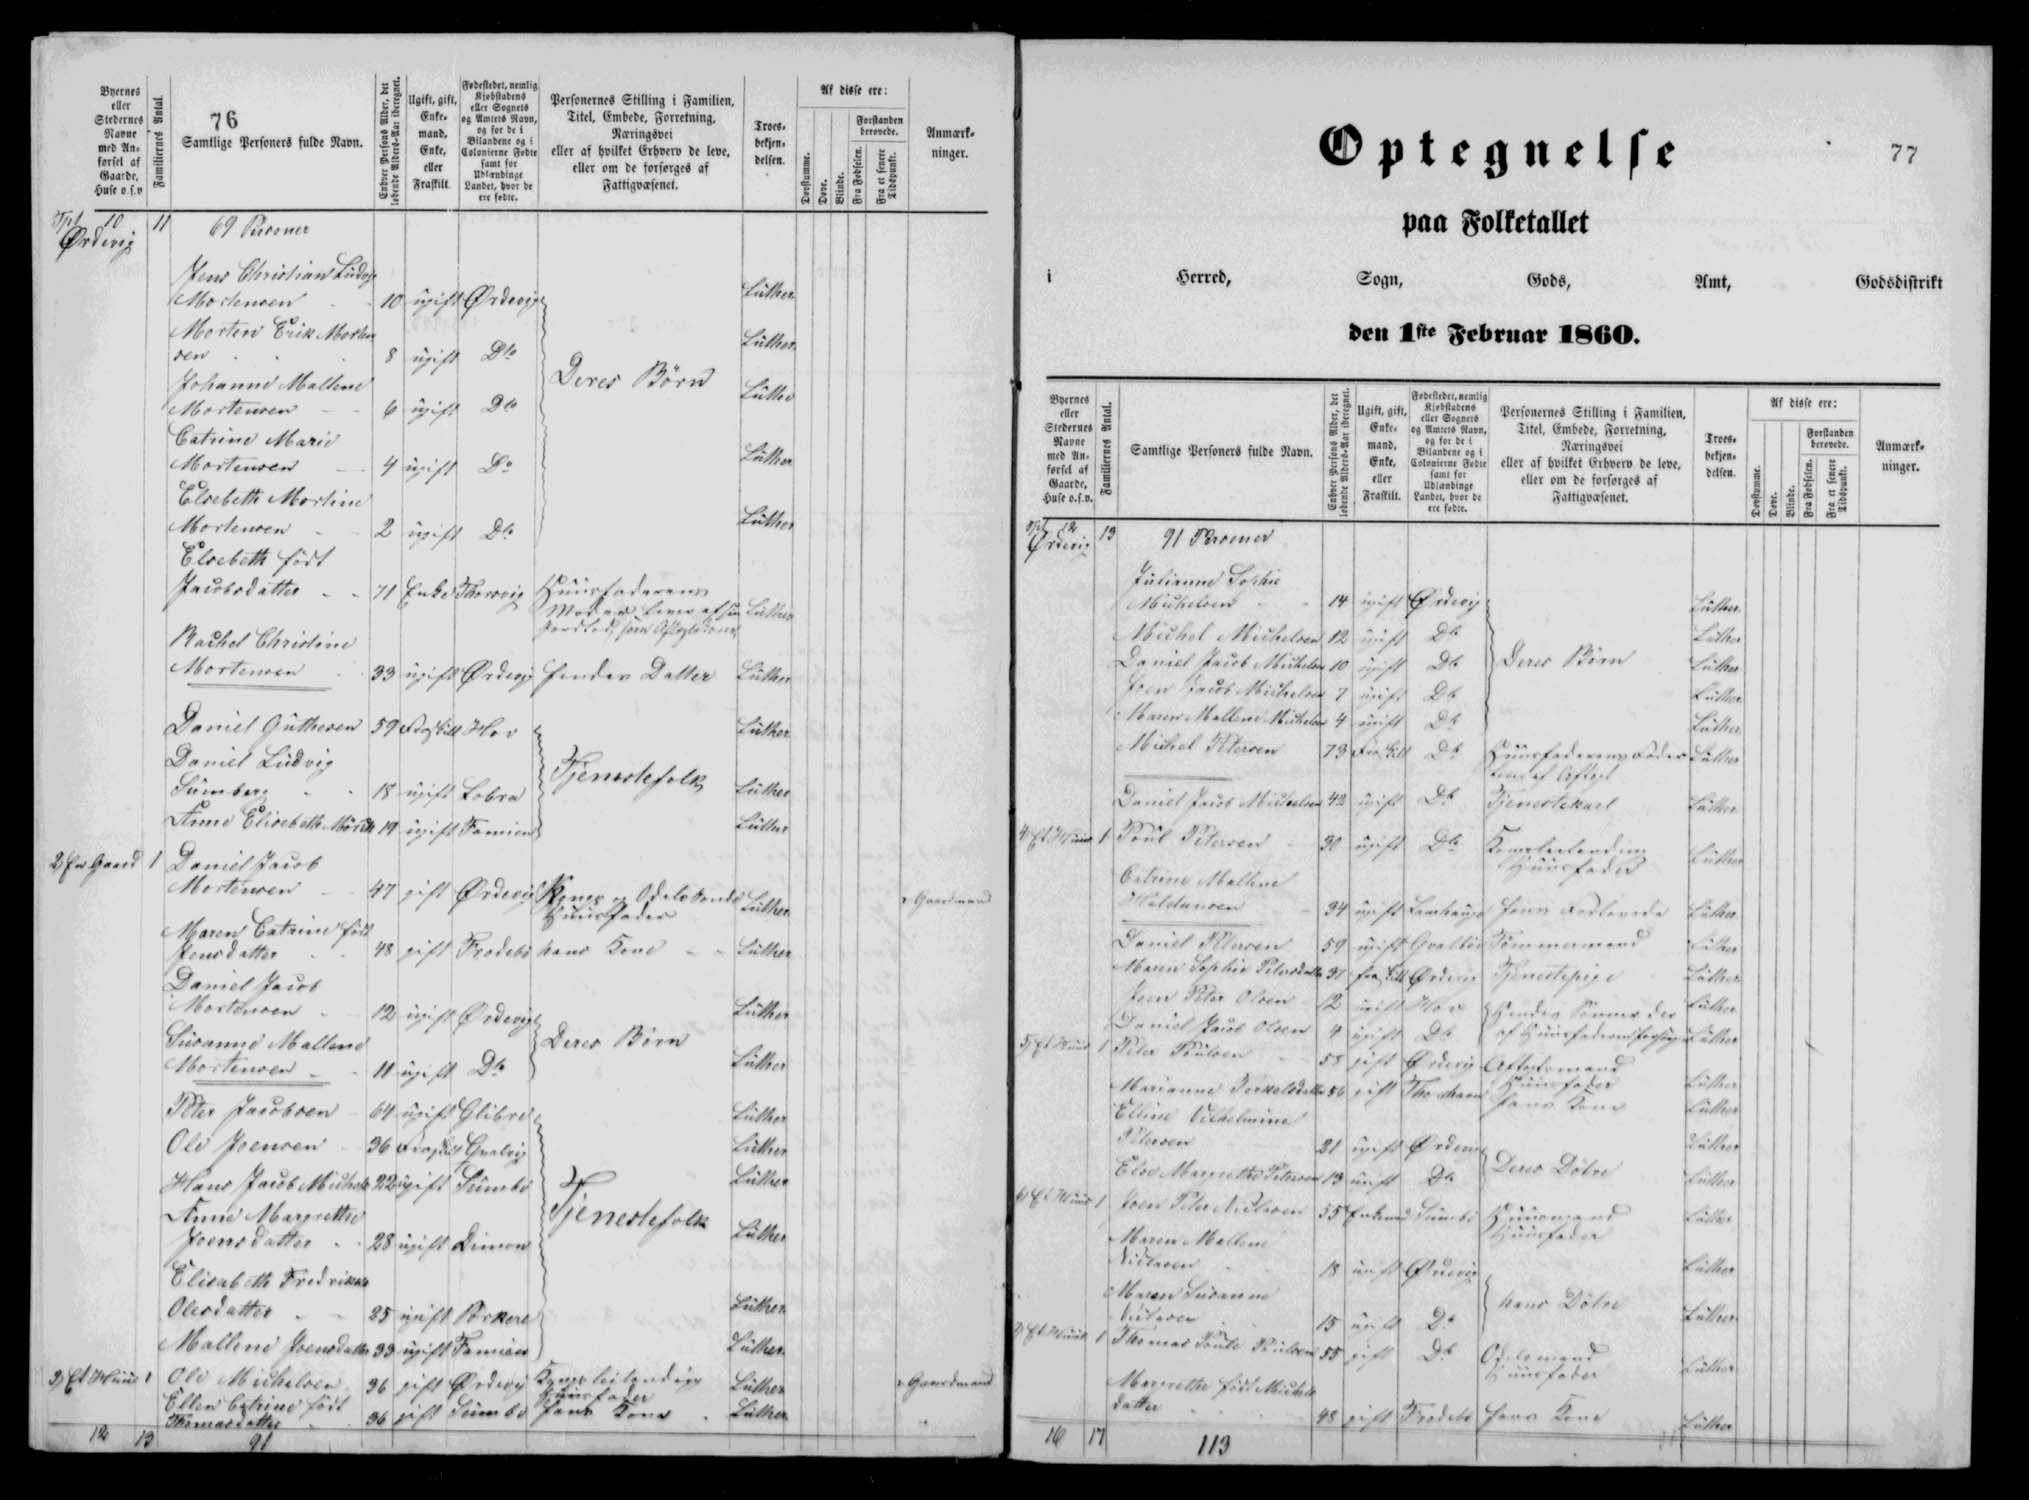 76
Byernes eller Stedernes Navne med Anførsel af Gaarde, Huse o.s.v
Familiernes Antal.
Samtlige Personers fulde Navn.
Enhver Persons Alder, det løbende Alders-Aar iberegnet.
Ugift, gift, Enkemand, Enke, eller Fraskilt.
Fødestedet, nemlig Kjøbstadens eller Sognets og Amtets Navn, og for de i Bilandene og i Colonierne Fødte samt for Udlændinge Landet, hvor de ere fødte.
Personernes Stilling i Familien, Titel, Embede, Forretning, Næringsvei eller af hvilket Erhverv de leve, eller om de forsørges af Fattigvæsenet.
Troesbekjendelsen.
Af disse ere:
Døvstumme.
Døve.
Blinde.
Forstanden berøvede.
Fra Fødselen.
Fra et senere Tidspunkt.
Anmærkninger.
10 11 69 Personer
Ørdevig
Jens Christian Ludvig
Mortensen 10 ugift Ørdevig Luther
Morten Erik Morten
sen 8 ugift Dto Luther
Deres Børn
Johanne Mallene
Mortensen 6 ugift Dto Luther
Catrine Marie
Mortensen 4 ugift Do Luther
Elsebeth Mortine
Mortensen 2 ugift Dto Luther
Elsebeth født
Jacobsdatter 71 Enke Huusfaderens
Moder, lever af sin Luther
Rachel Christine
Mortensen 33 ugift Ørdevig hendes Datter Luther
Daniel Guttesen 59 Fraskilt Hov Luther
Daniel Ludvig
Sumberg 18 ugift Lobra Luther
Tjenestefolk
Anne Elisebeth 19 ugift Famien Luther
2) En Gaard 1 Daniel Jacob
Mortensen 47 gift Ørdevig Konge og Odelsbonde Luther Gaardmand
Huusfader
Maren Catrine født
Jensdatter 48 gift Frodebø hans Kone Luther
Daniel Jacob
Mortensen 12 ugift Ørdevig Luther
Deres Børn
Susanne Mallene
Mortensen 11 ugift Dto Luther
Peter Jacobsen 64 ugift Glibre Luther
Ole Joensen 36 Fraskilt Luther
Hans Jacob Michels 22 ugift Sumbø Luther
Tjenestefolk
Anne Margrethe
Joensdatter 28 ugift Dimon Luther
Elisabeth Fredrikke
Olesdatter 25 ugift Porkere Luther
Mallene Joensdatter 33 ugift Famien Luther
3) Et Huus 1 Ole Michelsen 36 gift Ørdevig Luther Gaardmand
Huusfader
Ellen Catrine født
Thomasdatter 36 gift Sumbø hans Kone Luther
12 13 91
77
Optegnelse
paa Folketallet
i Herred, Sogn, Gods, Amt, Godsdistrikt
den 1ste Februar 1860.
Byernes eller Stedernes Navne med Anførsel af Gaarde, Huse o.s.v.
Familiernes Antal.
Samtlige Personers fulde Navn.
Enhver Persons Alder, det løbende Alders-Aar iberegnet.
Ugift, gift, Enkemand, Enke, eller Fraskilt.
Fødestedet, nemlig Kjøbstadens eller Sognets og Amtets Navn, og for de i Bilandene og i Colonierne Fødte samt for Udlændinge Landet, hvor de ere fødte.
Personernes Stilling i Familien, Titel, Embede, Forretning, Næringsvei eller af hvilket Erhverv de leve, eller om de forsørges af Fattigvæsenet.
Troesbekjendelsen.
Af disse ere:
Døvstumme.
Døve.
Blinde.
Forstanden berøvede.
Fra Fødselen.
Fra et senere Tidspunkt.
Anmærkninger.
12 13 91 Personer
Ørdevig
Julianne Sophie
Michelsen 14 ugift Ørdevig Luther
Michel Michelsen 12 ugift Do Luther
Daniel Jacob Michelsen 10 ugift Do Deres Børn Luther
Joen Jacob Michelsen 7 ugift Do Luther
Maren Mallene Michelsen 4 ugift Do Luther
Michel Petersen 73 Fraskilt Do Huusfaderens Fader Luther
Daniel Jacob Michelsen 42 ugift Do Tjenestekarl Luther
4) Et Huus 1 Poul Petersen 30 ugift Do Luther
Huusfader
Catrine Mallene
34 ugift hans Luther
Daniel Petersen 59 ugift Tømmermand Luther
Maren Sophie Petersdatter 31 fraskilt Ørdevig Tjenestepige Luther
Joen Peter Olsen 12 ugift Hov Hendes Sønner der Luther
Daniel Jacob Olsen 4 ugift Do af Huusfaderen Luther
5) Et Huus 1 Peter Poulsen 58 gift Ørdevig Aftægtsmand
Huusfader Luther
Marianne 56 gift Thorshavn hans Kone Luther
Elline Vilhelmine
Petersen 21 ugift Ørdevig Luther
Deres Døtre
Else Margrethe Petersen 13 ugift Do Luther
6) Et Huus 1 Joen Peter 55 Enkemand Sumbø Huusmand Luther
Huusfader
Maren Mallene
18 ugift Ørdevig Luther
hans Døtre
Maren Susanne
15 ugift Do Luther
7) Et Huus 1 Thomas Poulsen 55 gift Do Odelsmand Luther
Huusfader
Margrethe født Michels
datter 48 gift Frodebø hans Kone Luther
16 17 113